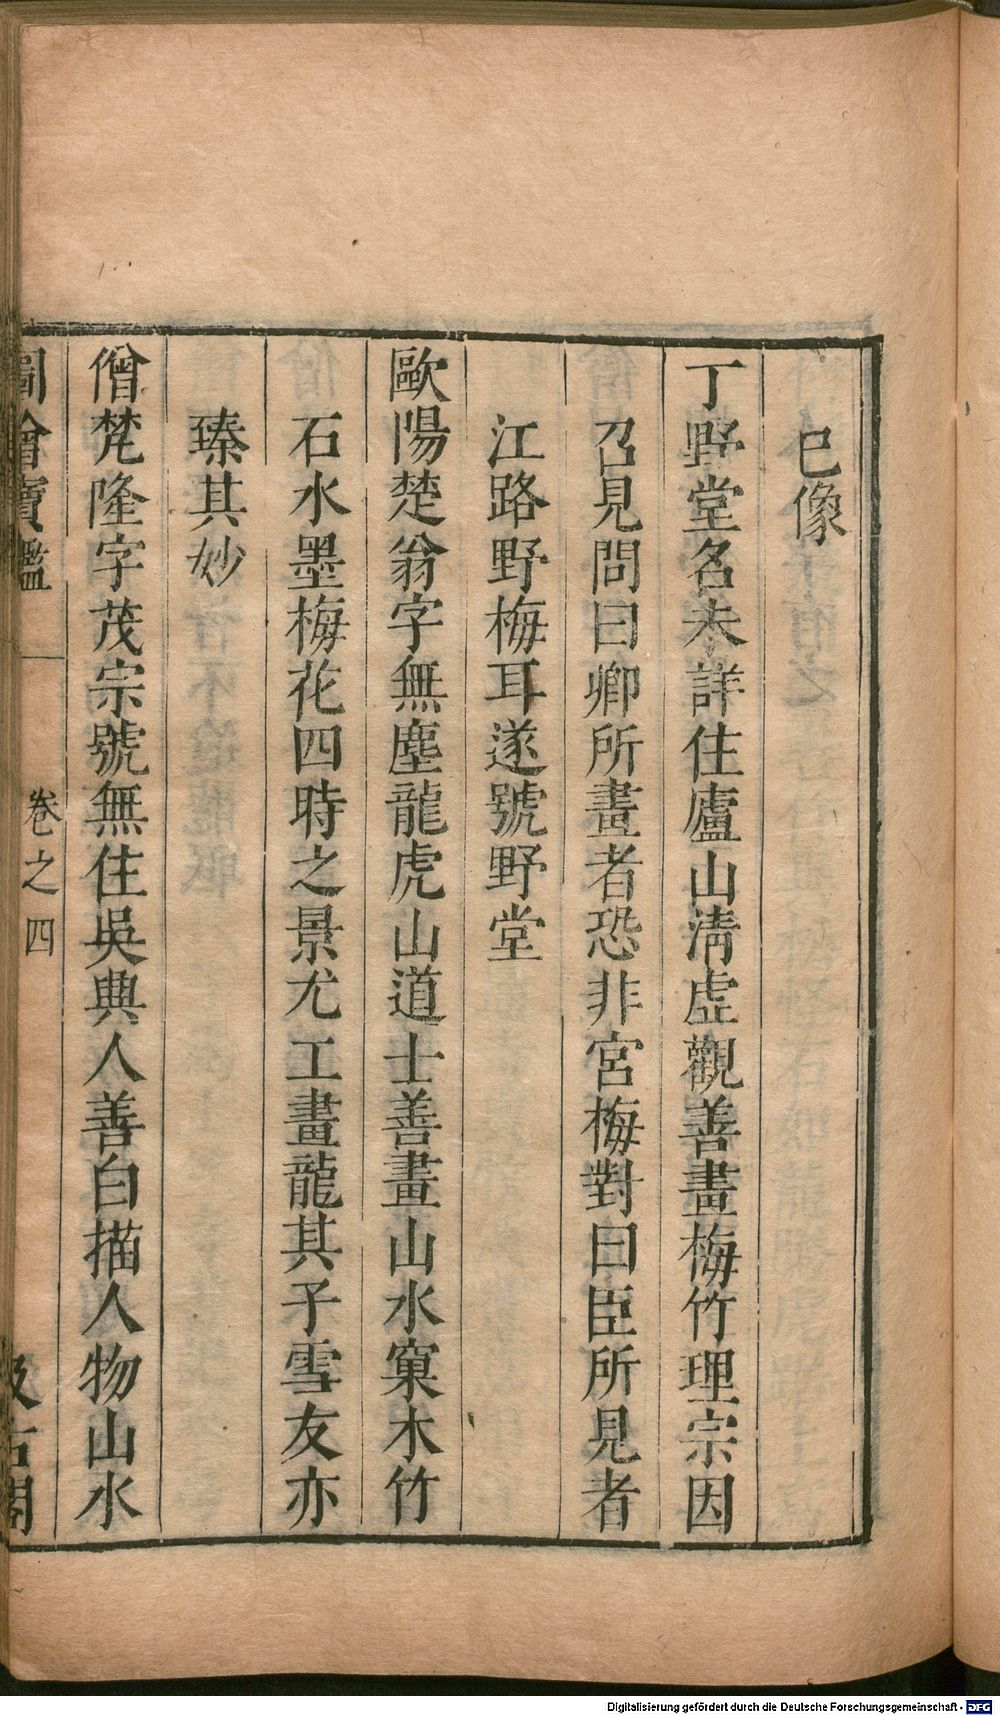 巳像
丁野堂名未詳住廬山淸虛觀善畫梅竹理宗因
召見問曰卿所畫者恐非宮梅對曰臣所見者
江路野梅耳遂號野堂
歐陽楚翁字無塵龍虎山道士善畫山水窠木竹
石水墨梅花四時之景尤工畫龍其子雪友亦
臻其妙
僧梵隆字茂宗號無住吳興人善白描人物山水
圖繪寶鑑 卷之四 汲古閣
Digitalisierung gefördert durch die Deutsche Forschungsgemeinschaft - DFG